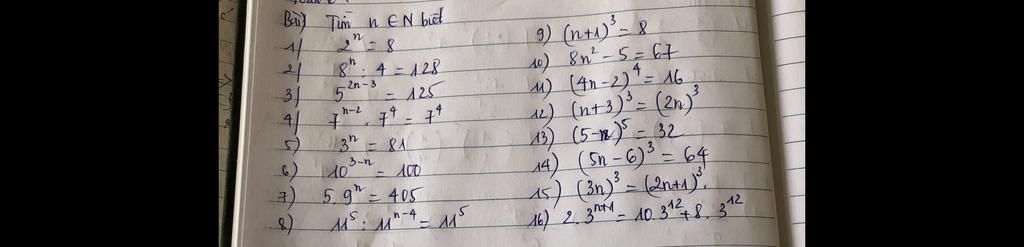 Bài) Tìm n ∈ N biết
1) 2ⁿ = 8
2) 8ⁿ : 4 = 128
3) 5²ⁿ⁻³ = 125
4) 7ⁿ⁻² . 7⁴ = 7⁴
5) 3ⁿ = 81
6) 10³⁻ⁿ = 100
7) 5.9ⁿ = 405
8) 11⁵ : 11ⁿ⁻⁴ = 11⁵
9) (n+1)³ = 8
10) 8n² - 5 = 67
11) (4n-2)⁴ = 16
12) (n+3)³ = (2n)³
13) (5-n)⁵ = 32
14) (5n-6)³ = 64
15) (3n)³ = (2n+1)³.
16) 2.3ⁿ⁺¹ = 10.3¹² + 8.3¹²